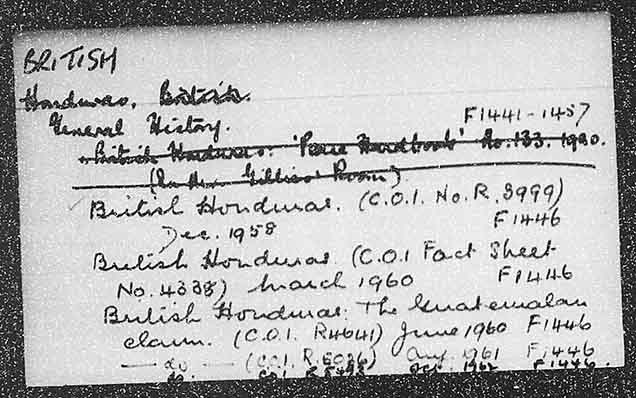 BRITISH
Honduras, British.
General History.
F1441-1457
British Honduras: 'Peace Handbook' No. 133. 1920.
(In Mr. Gillies' Room)
British Honduras. (C.O.I. No. R. 3999)
Dec. 1958 F1446
British Honduras (C.O.I Fact Sheet
No. 4338) March 1960 F1446
British Honduras: The Guatemalan
claim. (C.O.I. R4641) June 1960 F1446
— do — (COI. R.5036) Aug. 1961 F1446
do. COI R 5495 Oct. 1962 F1446